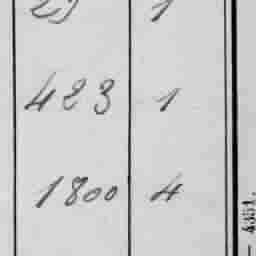 423 1
1800 4
— 4351.